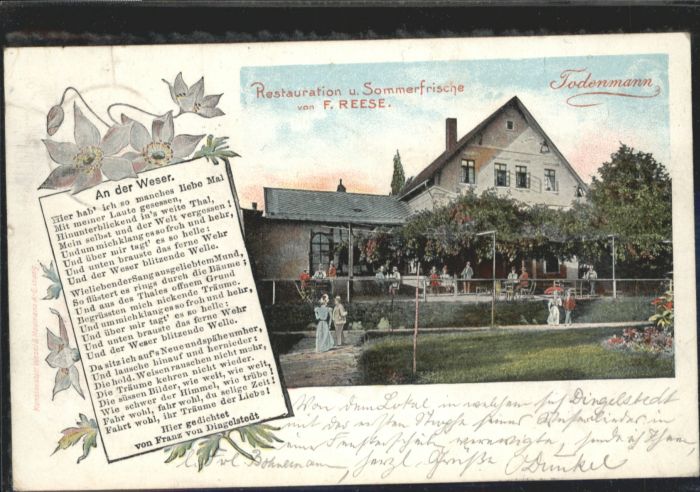 Restauration u. Sommerfrische
von F. REESE.
Todenmann
An der Weser.
Hier hab' ich so manches liebe Mal
Mit meiner Laute gesessen,
Hinunterblickend in's weite Thal,
Mein selbst und der Welt vergessen!
Und um mich klang es so froh und hehr,
Und über mir tagt' es so helle:
Und unten brauste das ferne Wehr
Und der Weser blitzende Welle.
Wie liebender Sang aus geliebtem Mund,
So flüstert es rings durch die Bäume;
Und aus des Thales offnem Grund
Begrüssten mich nickende Träume.
Und um mich klang es so froh und hehr,
Und über mir tagt' es so helle:
Und unten brauste das ferne Wehr
Und der Weser blitzende Welle.
Da sitz ich auf's Neue und spähe umher,
Und lausche hinauf und hernieder:
Die hold. Weisen rauschen nicht mehr,
Die Träume kehren nicht wieder.
Die süssen Bilder, wie weit, wie weit,
Wie schwer der Himmel, wie trübe!
Fahr wohl, fahr wohl, du selige Zeit!
Fahrt wohl, ihr Träume der Liebe!
Hier gedichtet
von Franz von Dingelstedt
Von dem Lokal in welchem sich Dingelstedt
mit der ersten Strophe seines Weserliedes in
einer Fensterscheibe verewigte, sende ich Ihnen,
herzl. Grüße Dunkel